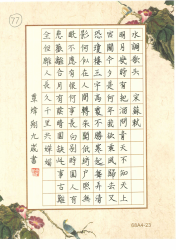 77
水調歌頭 宋蘇軾
明月幾時有把酒問青天不知天上
宮闕今夕是何年我欲乘風歸去又
恐瓊樓玉宇高處不勝寒起舞弄清
影何似在人間轉朱閣低綺戶照無
眠不應有恨何事長向別時圓人有
悲歡離合月有陰晴圓缺此事古難
全但願人長久千里共嬋娟
翔九歲書
09A4-23